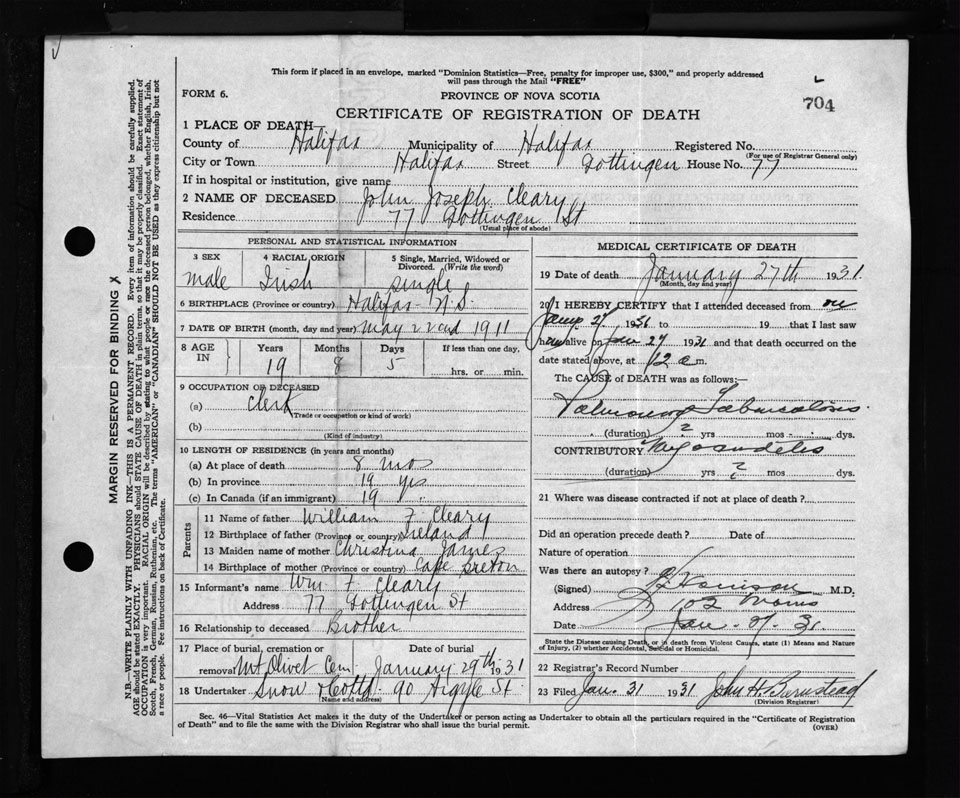 This form if placed in an envelope, marked "Dominion Statistics—Free, penalty for improper use, $300," and properly addressed
will pass through the Mail "FREE"
FORM 6.
PROVINCE OF NOVA SCOTIA
704
CERTIFICATE OF REGISTRATION OF DEATH
1 PLACE OF DEATH—
County of Halifax Municipality of Halifax Registered No.
(For use of Registrar General only)
City or Town Halifax Street Gottingen House No. 77
If in hospital or institution, give name
2 NAME OF DECEASED John Joseph Cleary
Residence 77 Gottingen St
(Usual place of abode)
PERSONAL AND STATISTICAL INFORMATION
3 SEX 4 RACIAL ORIGIN 5 Single, Married, Widowed or Divorced. (Write the word)
male Irish single
6 BIRTHPLACE (Province or country) Halifax N.S.
7 DATE OF BIRTH (month, day and year) May 22nd 1911
8 AGE IN Years Months Days If less than one day.
19 8 5 hrs. or min.
9 OCCUPATION OF DECEASED
(a) Clerk
(Trade or occupation or kind of work)
(b)
(Kind of industry)
10 LENGTH OF RESIDENCE (in years and months)
(a) At place of death 8 mos
(b) In province 19 yrs
(c) In Canada (if an immigrant) 19 "
Parents
11 Name of father William F. Cleary
12 Birthplace of father (Province or country) Ireland
13 Maiden name of mother Christina James
14 Birthplace of mother (Province or country) Cape Breton
15 Informant's name Wm F. Cleary
Address 77 Gottingen St
16 Relationship to deceased Brother
17 Place of burial, cremation or Date of burial
removal Mt Olivet Cem. January 29th 1931
18 Undertaker Snow & Co Ltd - 90 Argyle St
(Name and address)
MEDICAL CERTIFICATE OF DEATH
19 Date of death January 27th 1931
(Month, day and year)
20 I HEREBY CERTIFY that I attended deceased from on
Jany 27 1931 to 19 that I last saw
him alive on Jan 27 1931 and that death occurred on the
date stated above, at 12 a m.
The CAUSE of DEATH was as follows:—
Pulmonary Tuberculosis
(duration) 2 yrs mos dys.
CONTRIBUTORY Myocarditis
(duration) yrs ? mos dys.
21 Where was disease contracted if not at place of death?
Did an operation precede death? Date of
Nature of operation
Was there an autopsy?
(Signed) M.D.
Address 102 Morris
Date Jan. 27. 31
State the Disease causing Death, or in death from Violent Causes, state (1) Means and Nature
of Injury, (2) whether Accidental, Suicidal or Homicidal.
22 Registrar's Record Number
23 Filed Jan. 31 1931 John H. Barnstead
(Division Registrar)
Sec. 46—Vital Statistics Act makes it the duty of the Undertaker or person acting as Undertaker to obtain all the particulars required in the "Certificate of Registration
of Death" and to file the same with the Division Registrar who shall issue the burial permit.
(OVER)
MARGIN RESERVED FOR BINDING X
N.B.—WRITE PLAINLY WITH UNFADING INK—THIS IS A PERMANENT RECORD. Every item of information should be carefully supplied.
AGE should be stated EXACTLY. PHYSICIANS should STATE CAUSE OF DEATH in plain terms, so that it may be properly classified. Exact statement of
OCCUPATION is very important. RACIAL ORIGIN will be described by stating to what people or race the deceased person belonged, whether English, Irish,
Scotch, French, German, Russian, Ruthenian, etc. The terms "AMERICAN" or "CANADIAN" SHOULD NOT BE USED as they express citizenship but not
a race or people. Fee instructions on back of Certificate.